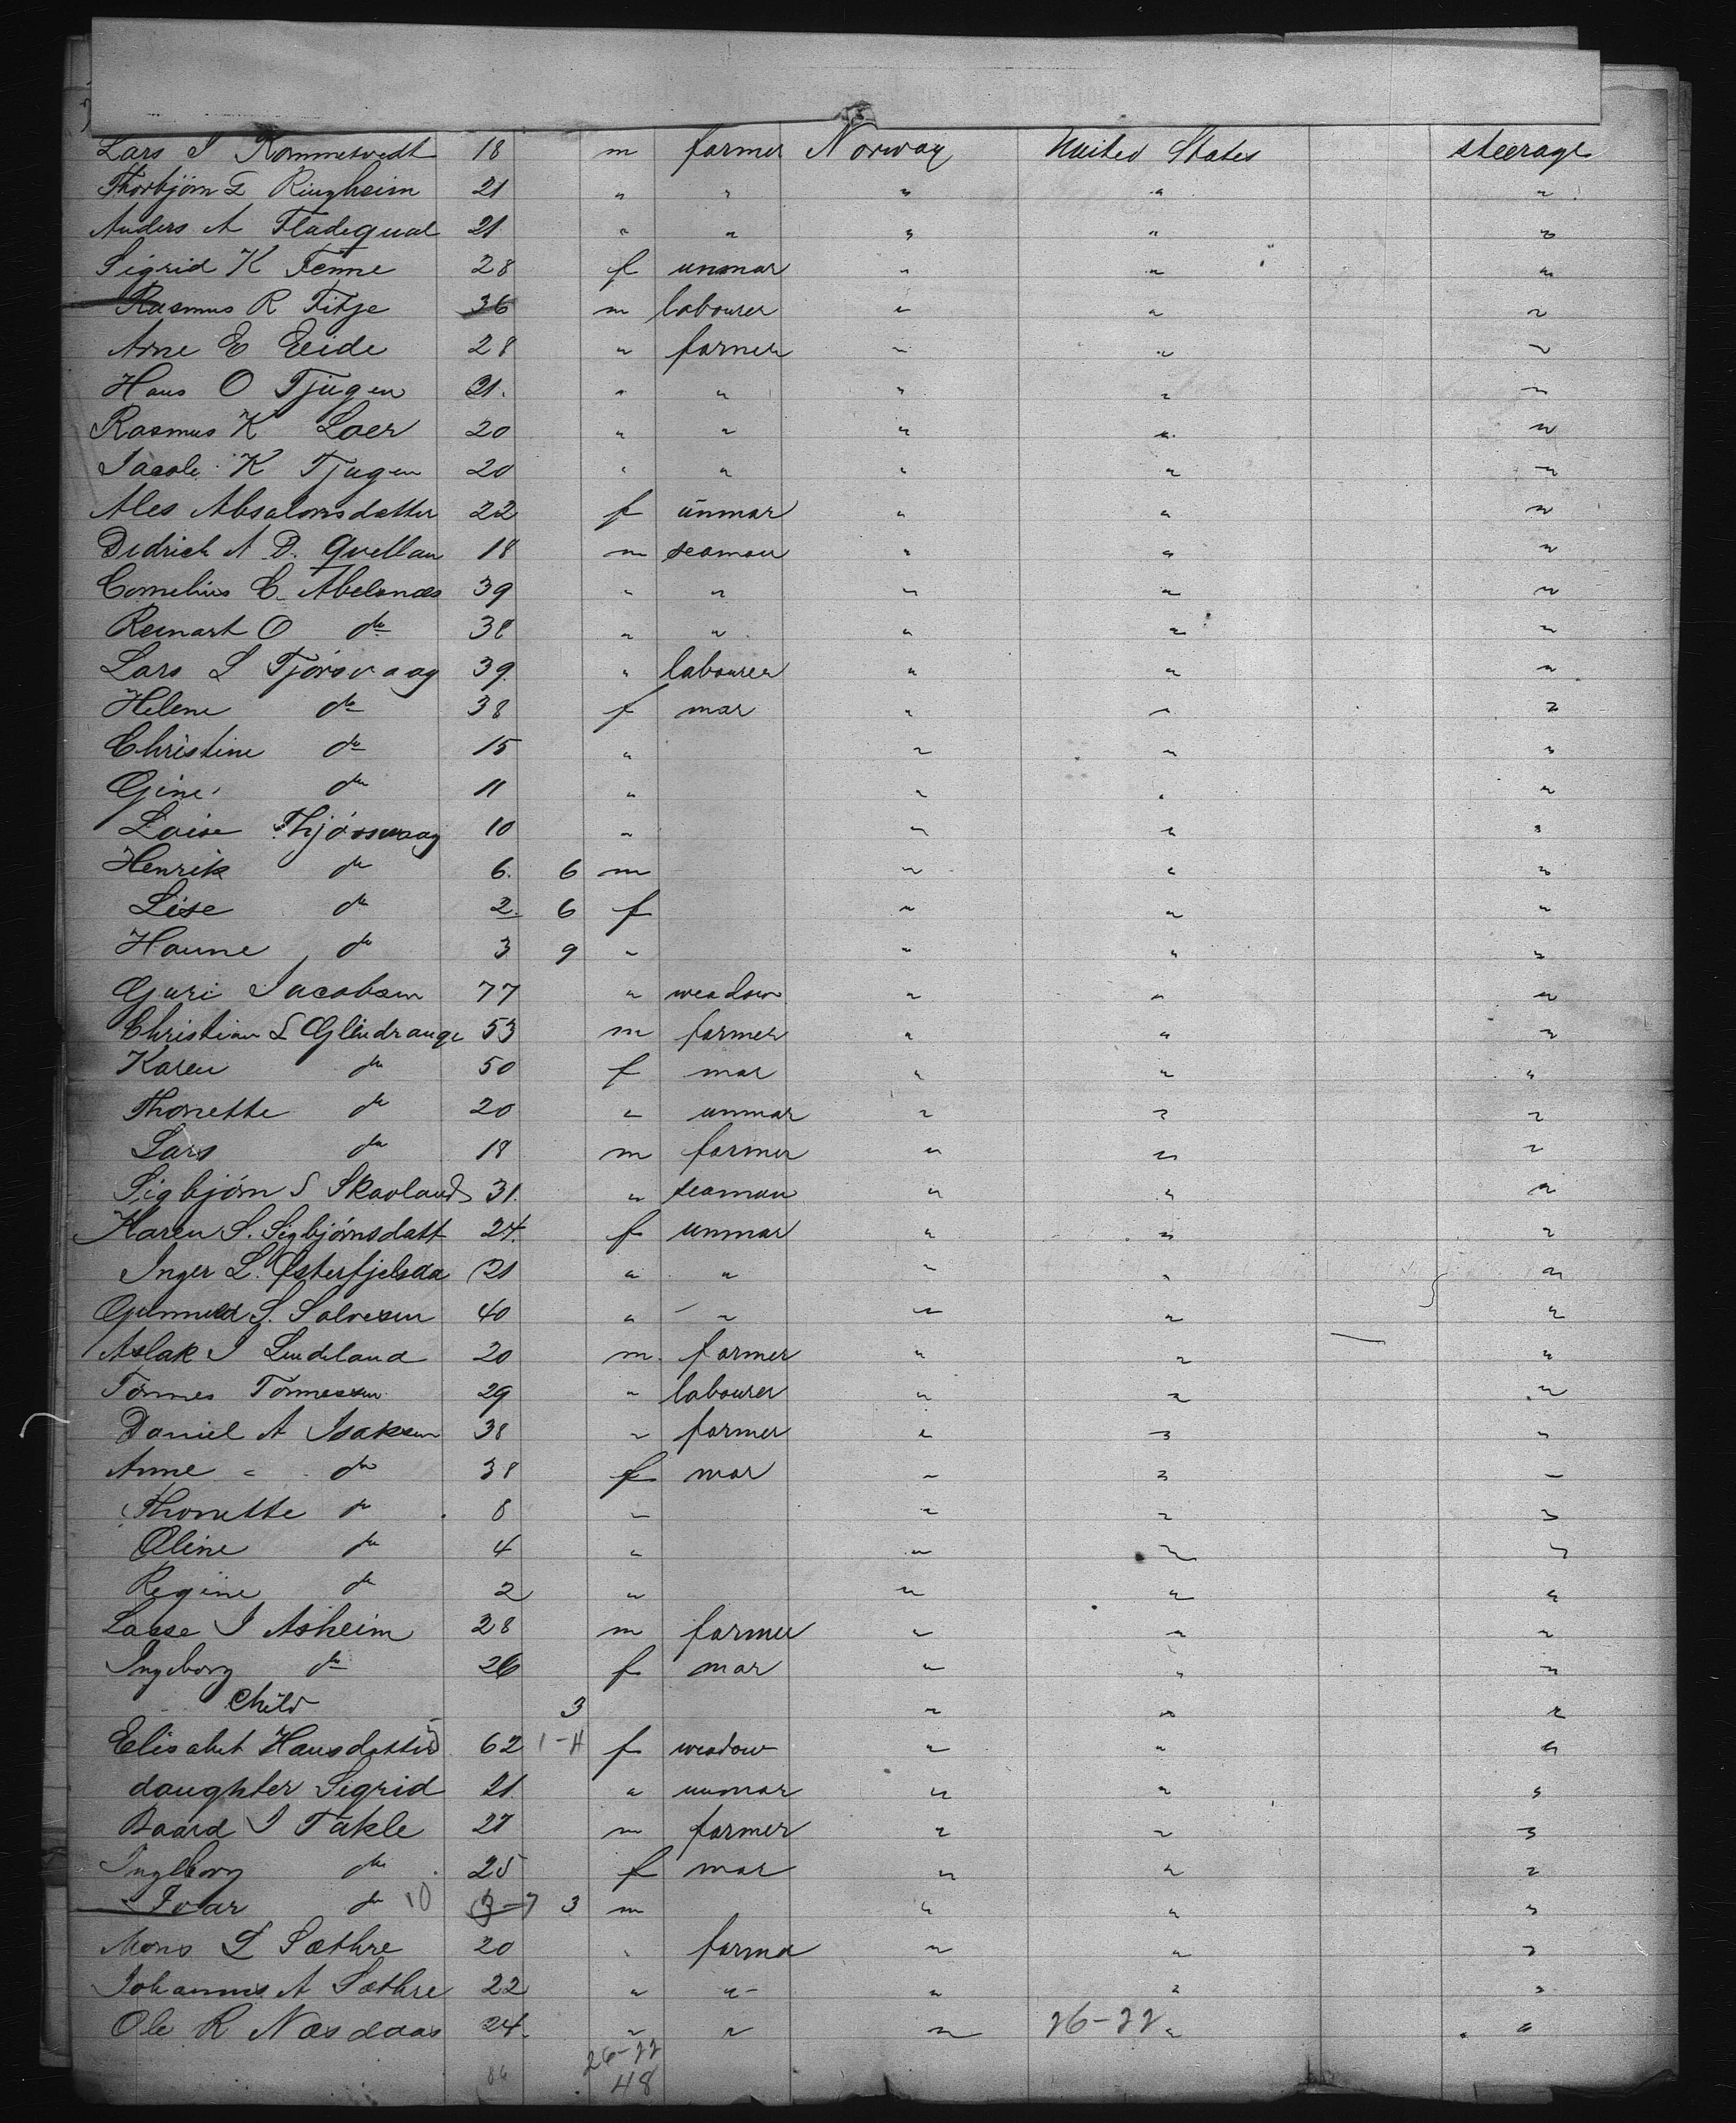 Lars I Rommetvedt 18 m farmer Norway United States steerage
Thorbjörn L Ringheim 21 " " " " "
Anders A Fladequal 21 " " " " "
Sigrid K Tenne 28 f unmar " " "
Rasmus R Fitje 36 m labourer " " "
Arne E Eeide 28 " farmer " " "
Hans O Tjugen 21. " " " " "
Rasmus K Loer 20 " " " " "
Jacob K Tjugen 20 " " " " "
Ales Absalonsdatter 22 f unmar " " "
Didrich A D. Qvellan 18 m seaman " " "
Cornelius C. Abelsnæs 39 " " " " "
Reinart O do 38 " " " " "
Lars L Tjörsvaag 39. " labourer " " "
Helene do 38 f mar " " "
Christine do 15 " " " "
Gine do 11 " " " "
Loise Thjörsvaag 10 " " " "
Henrik do 6. 6 m " " "
Lise do 2. 6 f " " "
Hanne do 3 9 " " " "
Guri Jacobsen 77 " weadow " " "
Christian L Glendrange 53 m farmer " " "
Karen do 50 f mar " " "
Thonette do 20 " unmar " " "
Lars do 18 m farmer " " "
Sigbjörn S Skavland 31. " seaman " " "
Karen S. Sigbjörnsdatt 24. f unmar " " "
Inger L. Østerfjelsda 21 " " " " "
Gunnuld S. Salvesen 40 " " " " "
Aslak I Lindeland 20 m. farmer " " "
Tönnes Tönnessen 29 " labourer " " "
Daniel A Isaksen 38 " farmer " " "
Anne " do 38 f mar " " "
Thonette do 8 " " " "
Oline do 4 " " " "
Regine do 2 " " " "
Lasse I Asheim 28 m farmer " " "
Ingeborg do 26 f mar " " "
Child 3 " " "
Elisabet Hansdatter 62 1-4 f weadow " " "
daughter Sigrid 21 " unmar " " "
Baard I Takle 27 m farmer " " "
Ingeborg do 25 f mar " " "
Ivar do 10 3 m " " "
Mons L Sæthre 20 " farmer " " "
Johannes A Sæthre 22 " " " " "
Ole R Næsdaas 24. " " " 26-22 " "
26-22
48